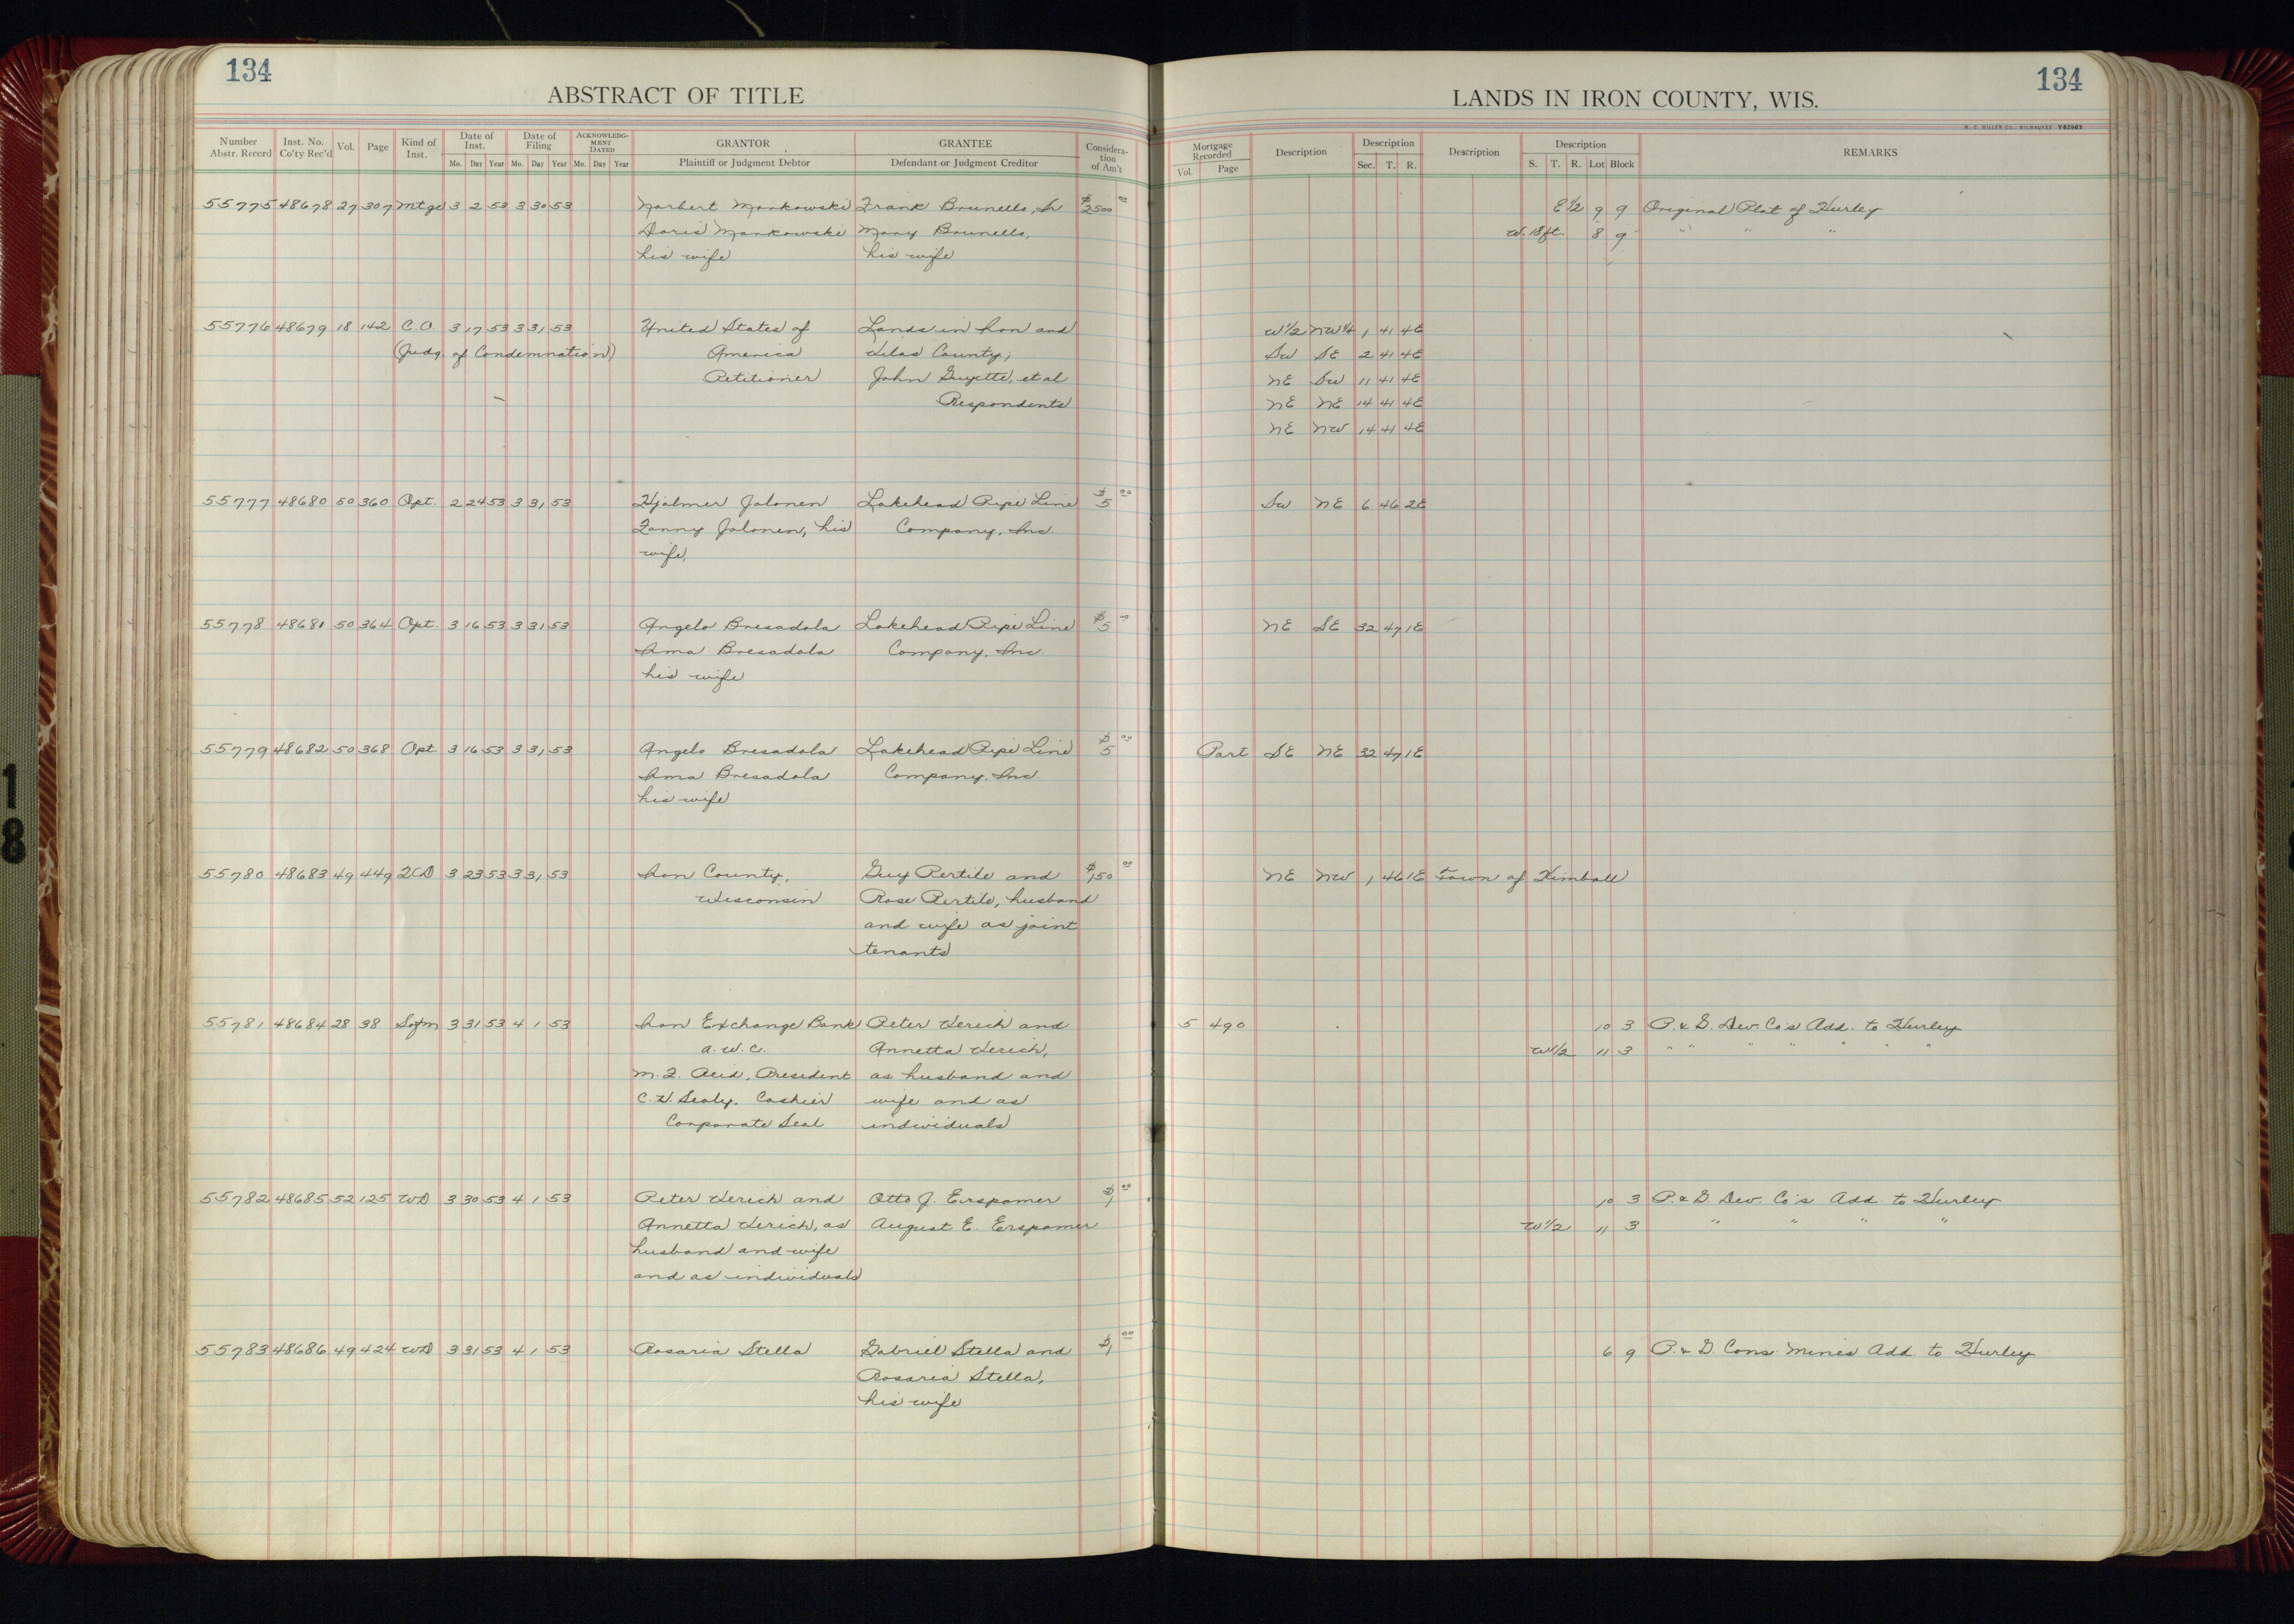 134
ABSTRACT OF TITLE
Number Abstr. Record Inst. No. Co'ty Rec'd Vol. Page Kind of Inst. Date of Inst. Mo. Day Year Date of Filing Mo. Day Year ACKNOWLEDGMENT DATED Mo. Day Year GRANTOR Plaintiff or Judgment Debtor GRANTEE Defendant or Judgment Creditor Considera-tion of Am't
LANDS IN IRON COUNTY, WIS.
134
H. C. MILLER CO., MILWAUKEE Y62963
Mortgage Recorded Vol. Page Description Description Sec. T. R. Description Description S. T. R. Lot Block REMARKS
55775 48678 27 307 Mtge 3 2 53 3 30 53 Norbert Mankowski Frank Brunello, Jr $2500 00 E 1/2 9 9 Original Plat of Hurley
Doris Mankowski Mary Brunello, W. 18 ft. 8 9 " " "
his wife his wife
55776 48679 18 142 C.O. 3 17 53 3 31 53 United States of Lands in Iron and W 1/2 NW 1/4 1 41 4E
(Judg. of Condemnation) America Vilas County; SW SE 2 41 4E
Petitioner John Guyette, et al NE SW 11 41 4E
Respondents NE NE 14 41 4E
NE NW 14 41 4E
55777 48680 50 360 Opt. 2 24 53 3 31 53 Hjalmer Jalonen Lakehead Pipe Line $5 00 SW NE 6 46 2E
Fanny Jalonen, his Company, Inc.
wife,
55778 48681 50 364 Opt. 3 16 53 3 31 53 Angelo Bresadola Lakehead Pipe Line $5 00 NE SE 32 47 1E
Ima Bresadola Company, Inc.
his wife
55779 48682 50 368 Opt 3 16 53 3 31 53 Angelo Bresadola Lakehead Pipe Line $5 00 Part SE NE 32 47 1E
Ima Bresadola Company, Inc.
his wife
55780 48683 49 449 QCD 3 23 53 3 31 53 Iron County, Guy Pertile and $150 00 NE NW 1 46 1E Town of Kimball
Wisconsin Rose Pertile, husband
and wife as joint
tenants
55781 48684 28 38 Sofm 3 31 53 4 1 53 Iron Exchange Bank Peter Verich and 5 490 10 3 P. & G. Dev. Co's Add. to Hurley
a. w. c. Annetta Verich, W 1/2 11 3 " " " " " " "
M. F. Reid, President as husband and
C. H. Sealy, Cashier wife and as
Corporate Seal individuals
55782 48685 52 125 WD 3 30 53 4 1 53 Peter Verich and Otto J. Erspamer $1 00 10 3 P. & G. Dev. Co's Add. to Hurley
Annetta Verich, as August E. Erspamer W 1/2 11 3 " " " "
husband and wife
and as individuals
55783 48686 49 424 WD 3 31 53 4 1 53 Rosaria Stella Gabriel Stella and $1 00 6 9 P. & G. Cons. Mines Add. to Hurley
Rosaria Stella,
his wife
18